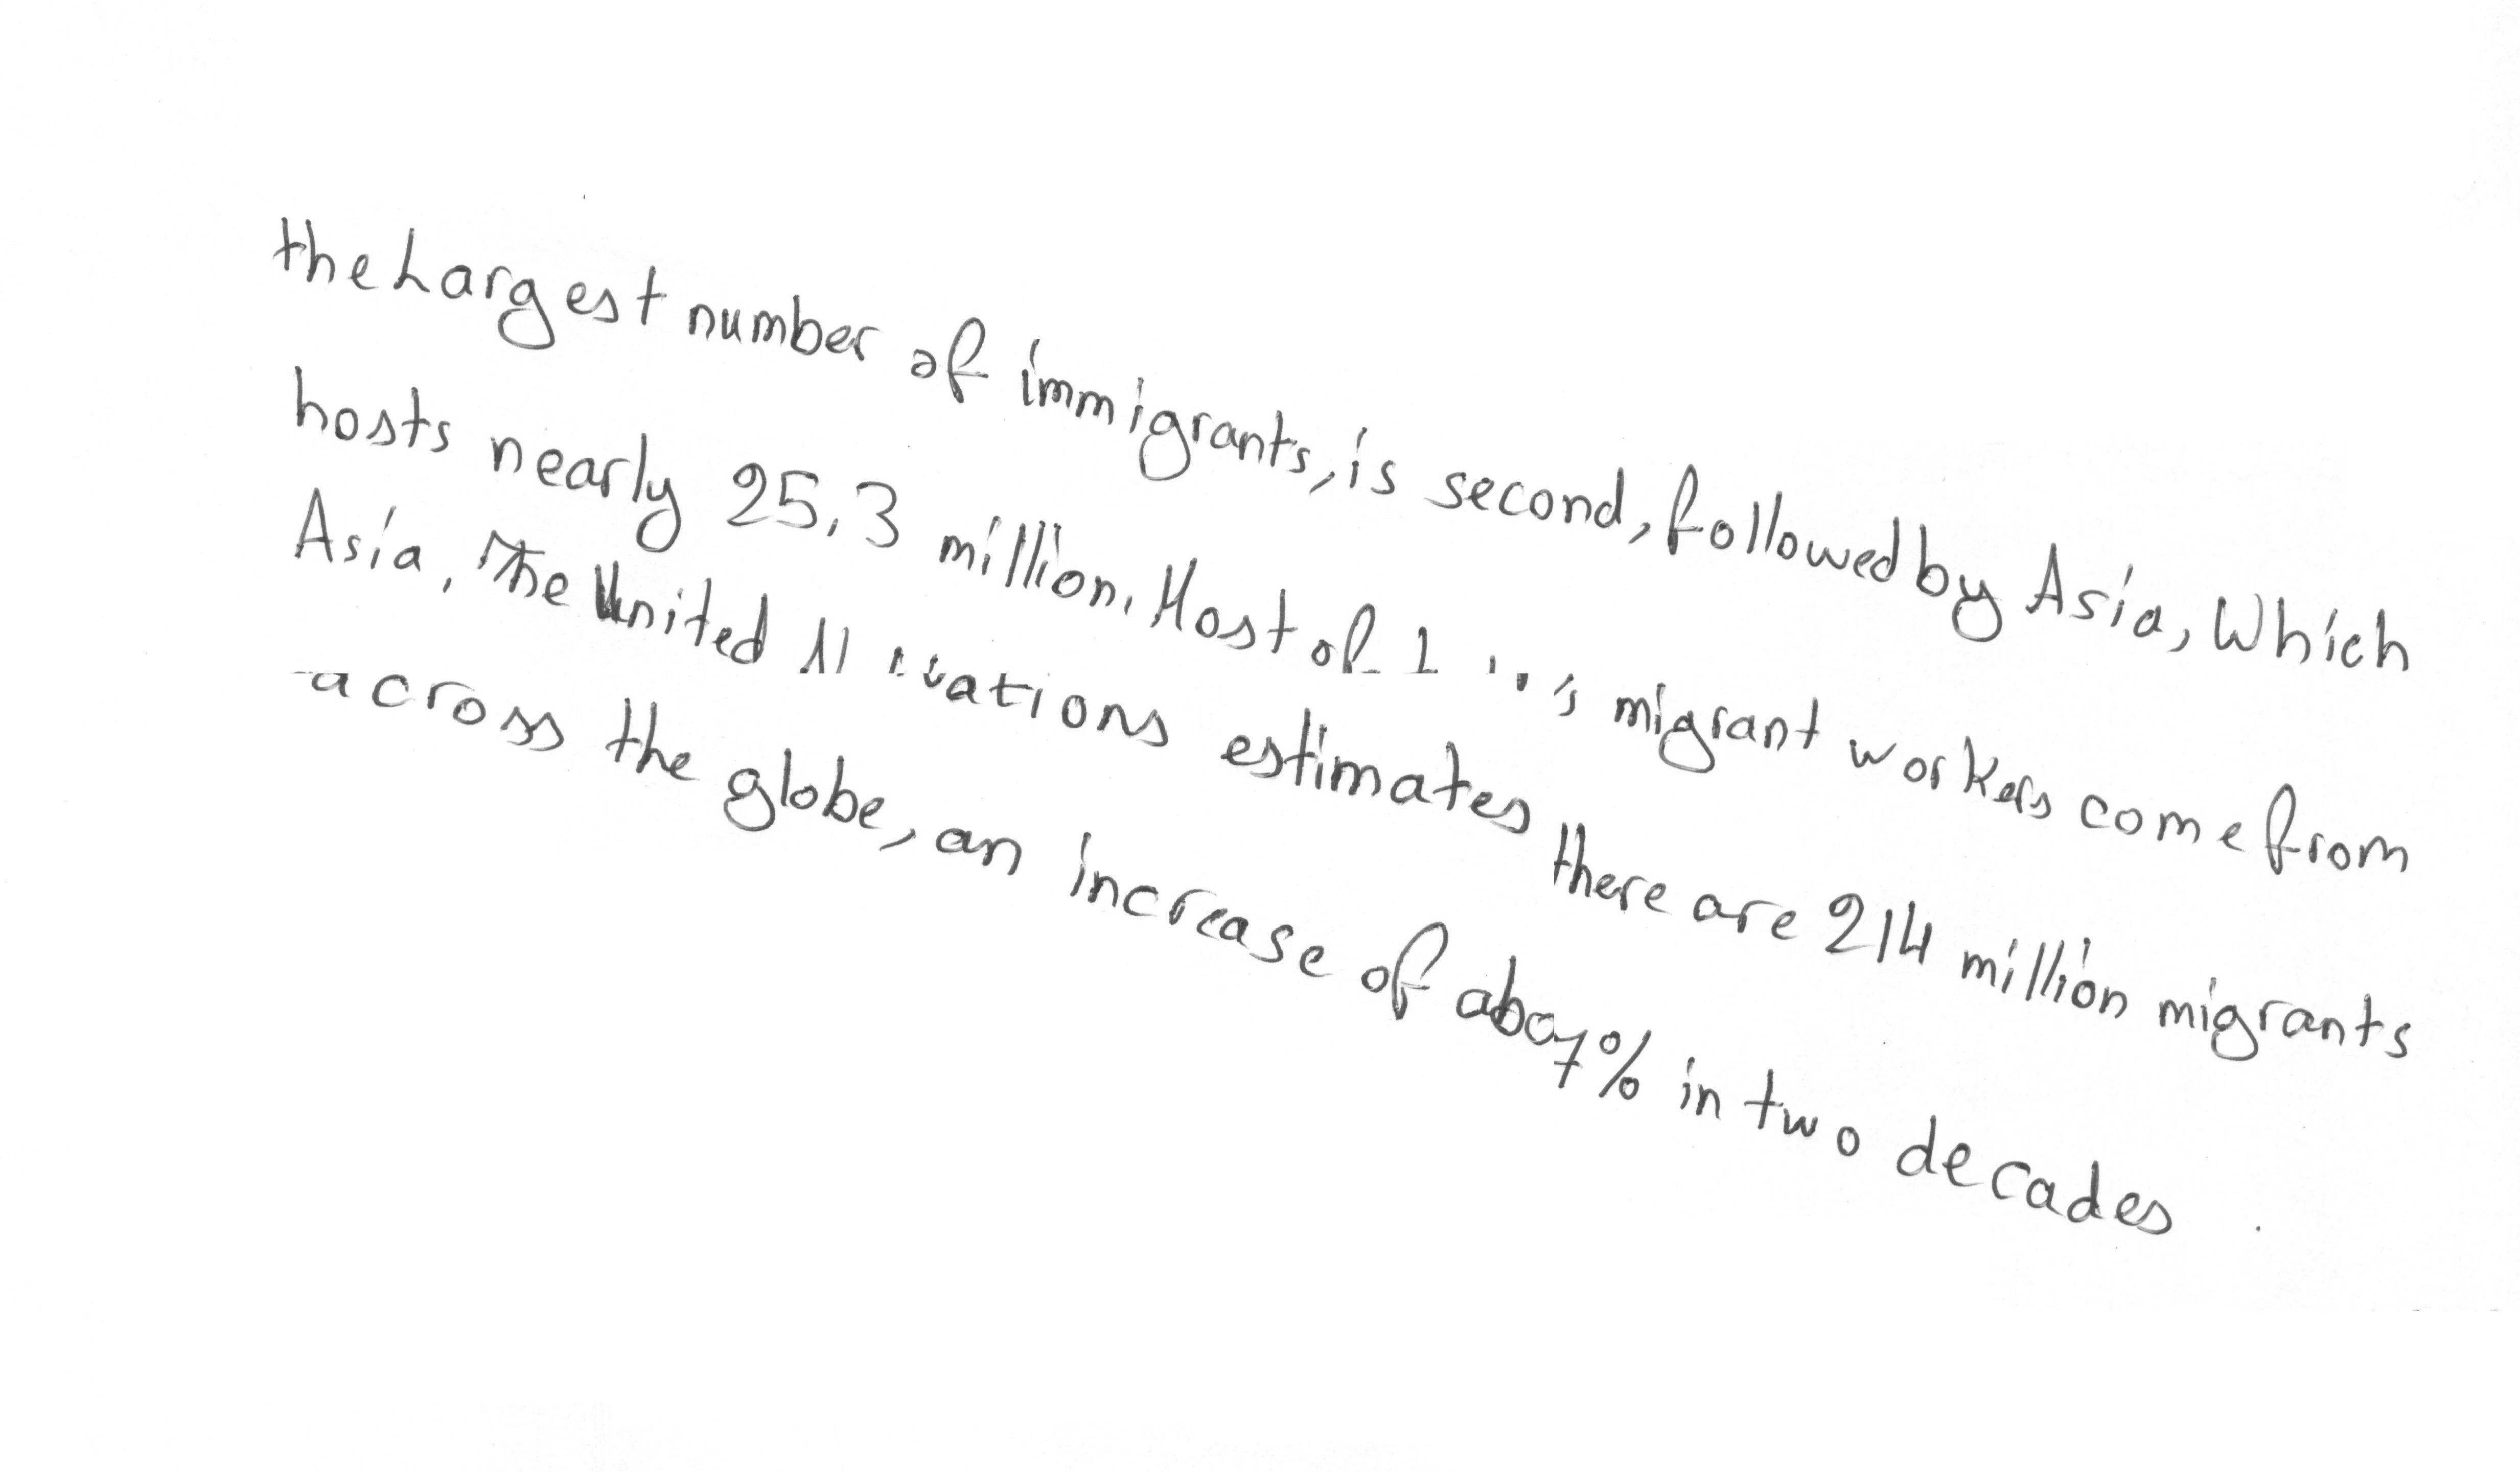 the Largest number of immigrants, is second, followed by Asia, Which
hosts nearly 25.3 million. Most of migrant workers come from
Asia. The United Nations estimates there are 214 million migrants
across the globe, an increase of about 7% in two decades